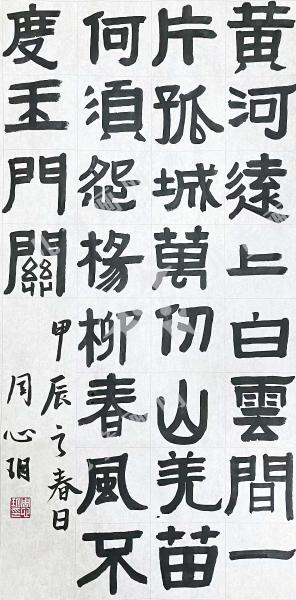 黄河遠上白雲間一
片孤城萬仞山羌苗
何須怨楊柳春風不
度玉門關
甲辰之春日
周心玥